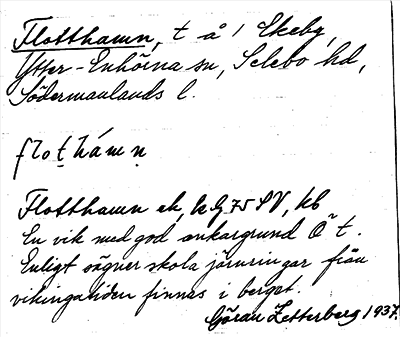 Flotthamn, t å 1 Ekeby,
Ytter-Enhörna sn, Selebo hd,
Södermanlands l.
flo t̠ hámn̠
Flotthamn ek, k G 75 SV, kb
En vik med god ankargrund Ö t.
Enligt sägner skola järnringar från
vikingatiden finnas i berget.
Göran Zetterberg 1937.